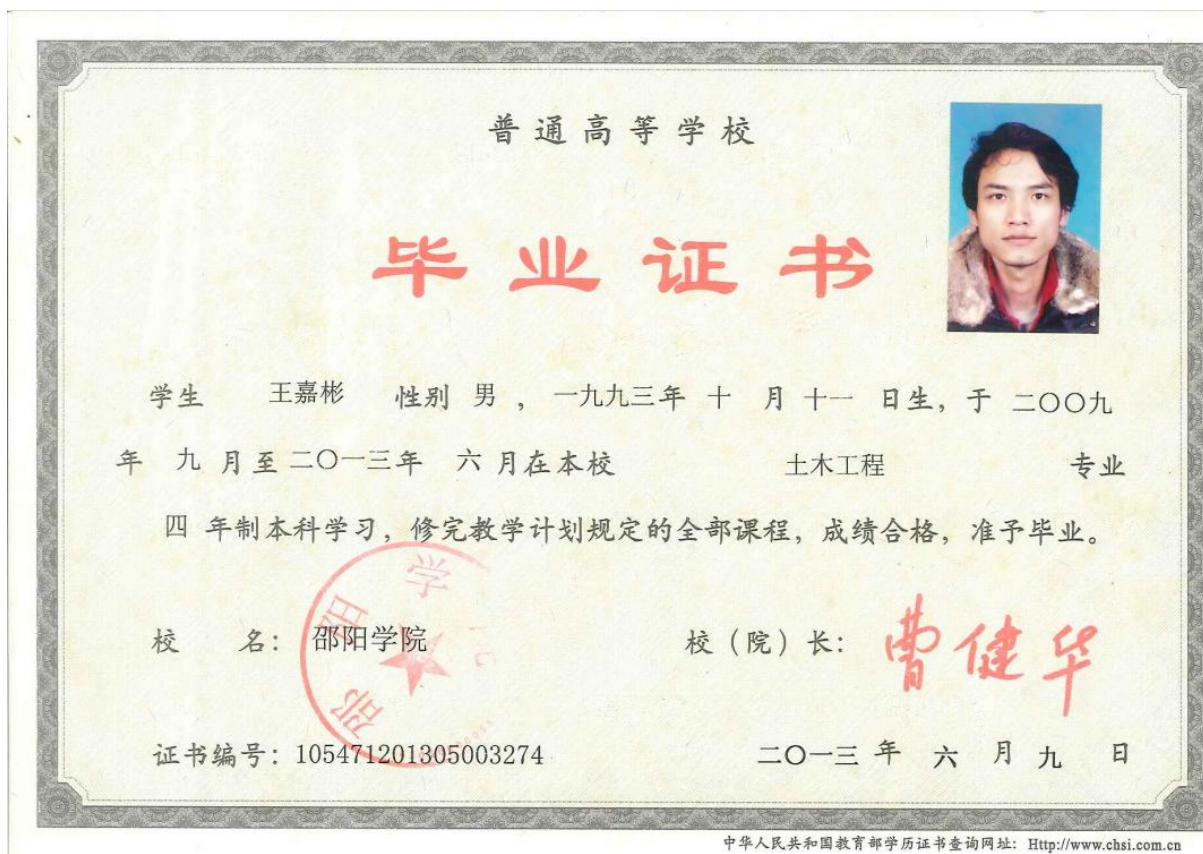 普通高等学校
毕业证书
学生 王嘉彬 性别 男 , 一九九三年 十 月 十一 日生, 于 二〇〇九
年 九 月至 二〇一三年 六 月在本校 土木工程 专业
四 年制本科学习, 修完教学计划规定的全部课程, 成绩合格, 准予毕业。
校 名: 邵阳学院 校（院）长: 曹健华
邵阳学
证书编号: 105471201305003274 二〇一三 年 六 月 九 日
中华人民共和国教育部学历证书查询网址: Http://www.chsi.com.cn